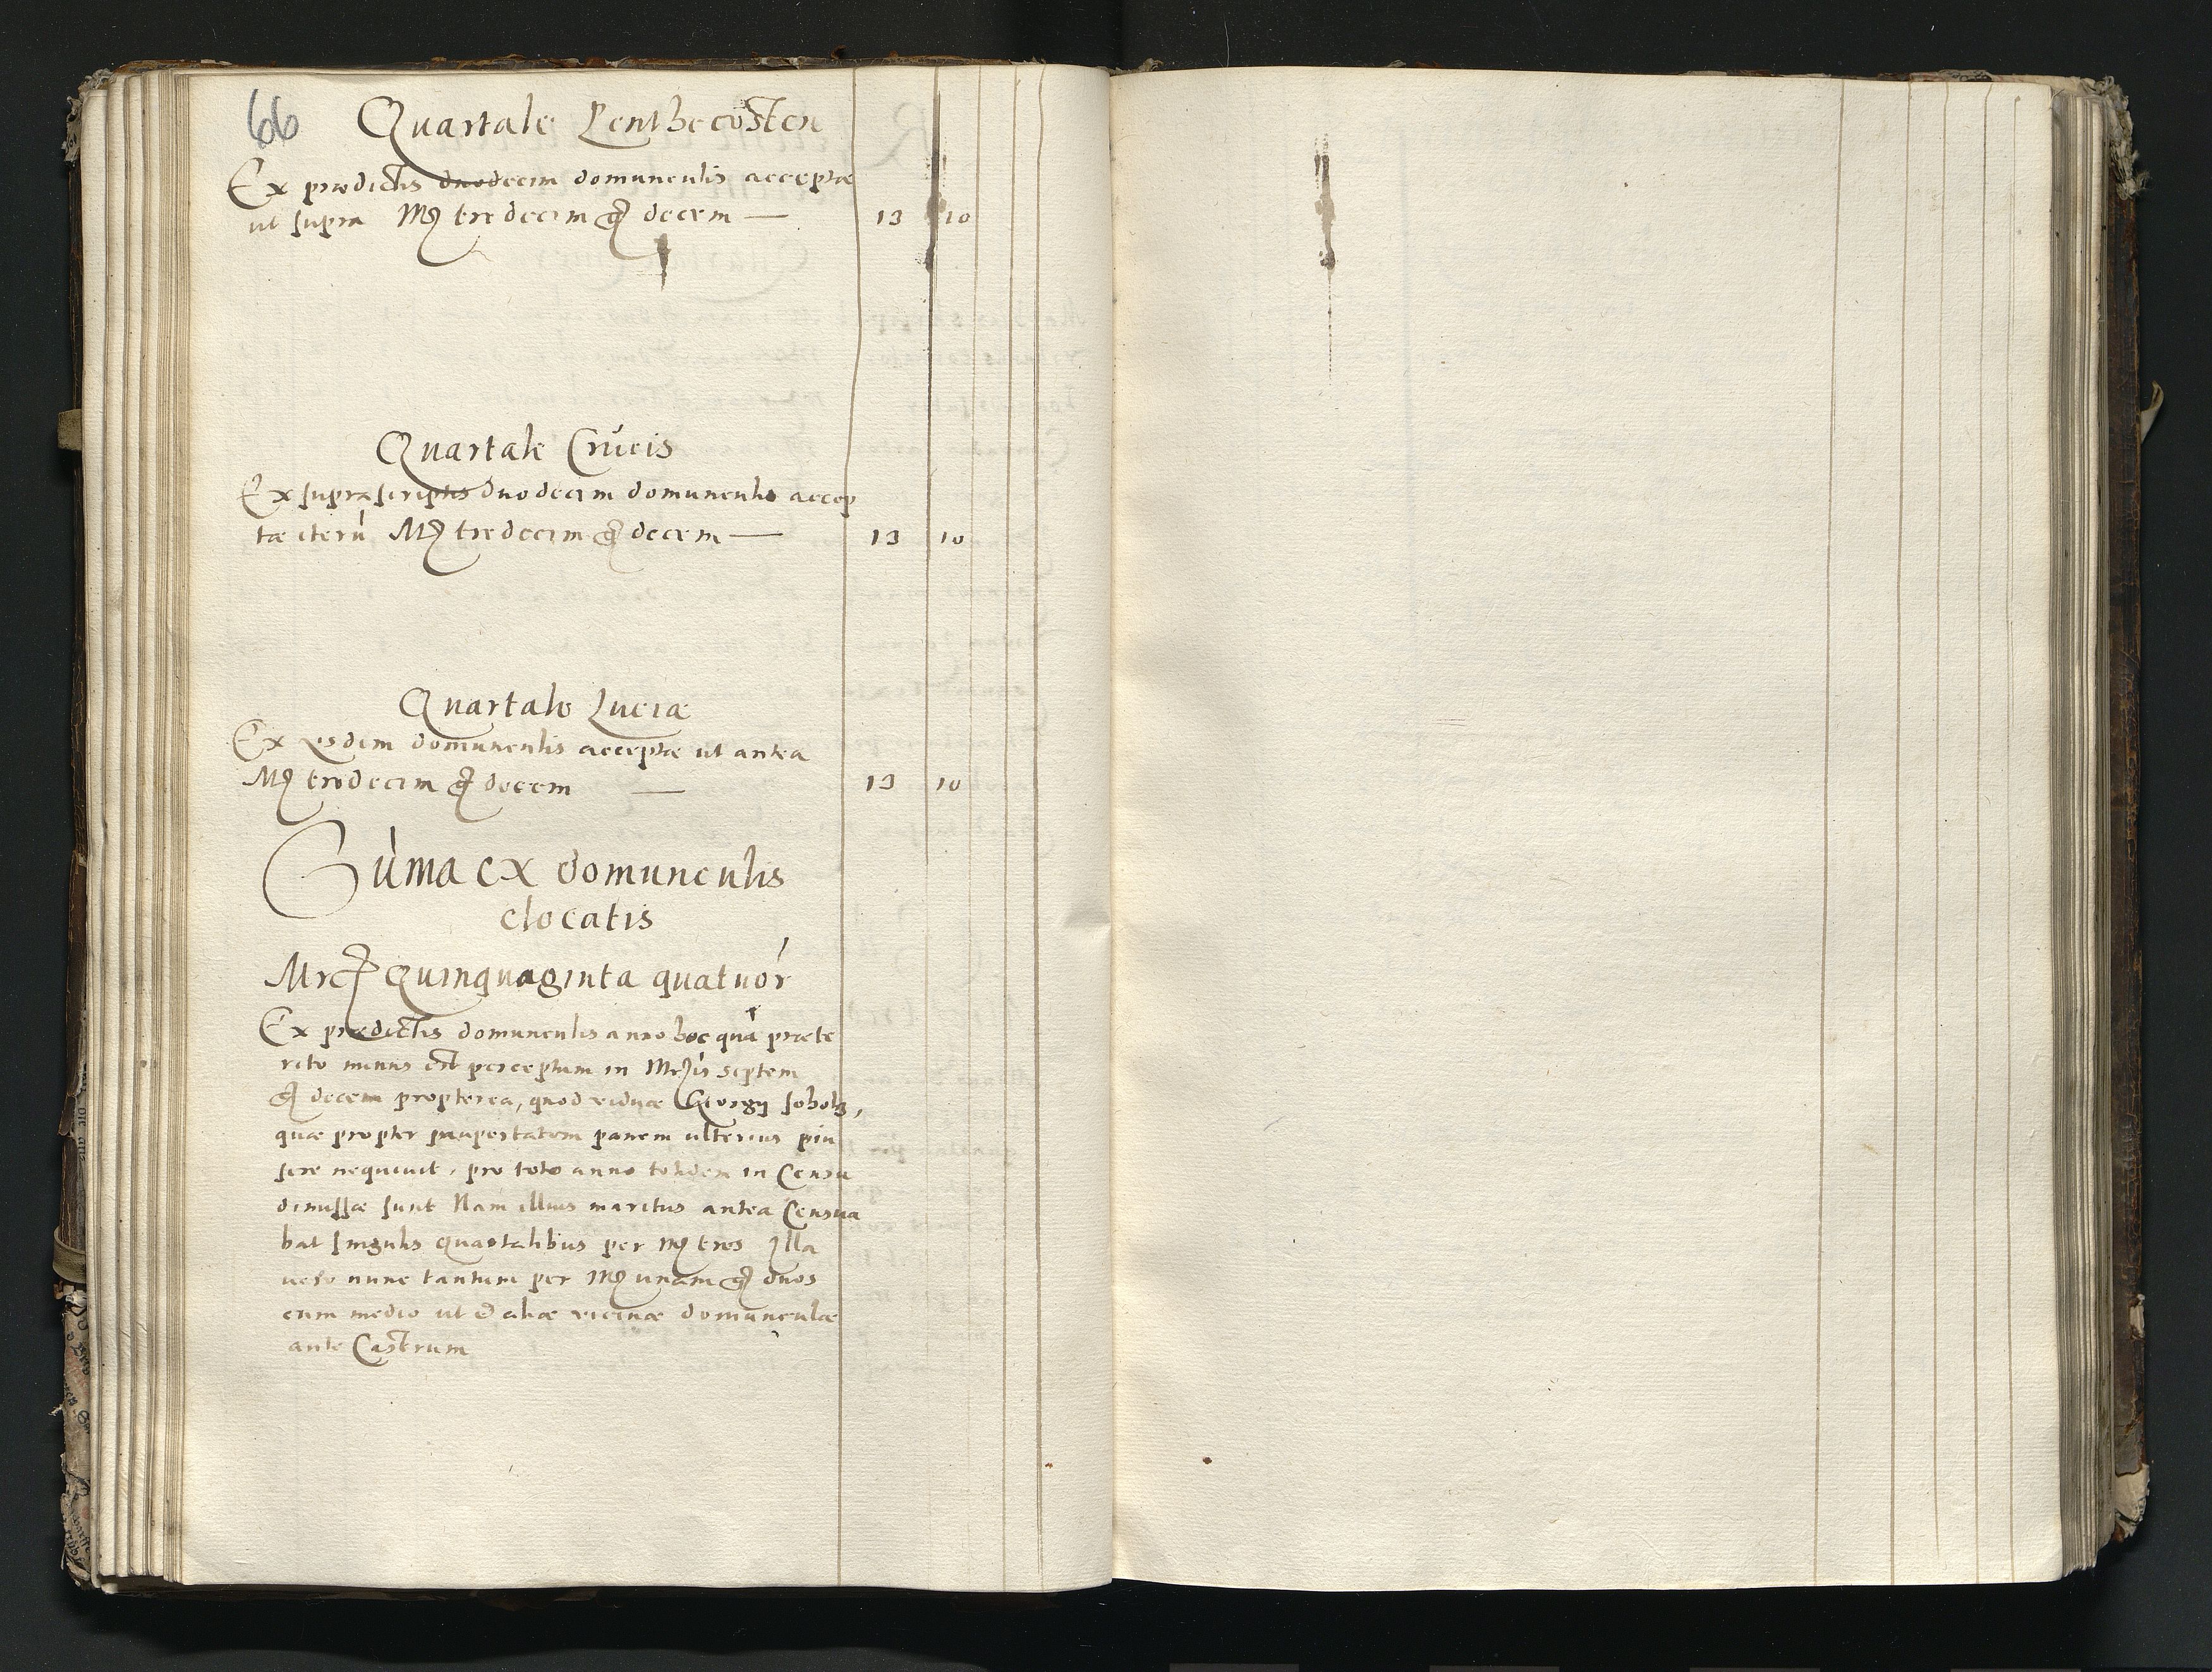 66 Quartale Penthecosten
Ex prædictis duodecim domunculis acceptæ
ut supra Mr tredecim gr decem — 13 10
Quartale Crucis
Ex suprascriptis duodecim domunculis accep
tæ iterū Mr tredecim gr decem — 13 10
Quartale Luciæ
Ex eisdem domunculis acceptæ ut antea
Mr tredecim gr decem — 13 10
Sūma ex domunculis
elocatis
Mrcę Quinquaginta quatuor
Ex prædictis domunculis anno hoc quā præte
rito minus est perceptum in Mrcis septem
gr decem propterea, quod viduæ Georgij
quæ propter paupertatem panem ulterius pin
sere nequiuit, pro toto anno totidem in Censu
dimissæ sunt Nam illius maritus antea Censua
bat singulis quartalibus per Mr tres Illa
uero nunc tantum per Mr unam gr duos
cum medio ut et aliæ vicinæ domunculæ
ante Castrum